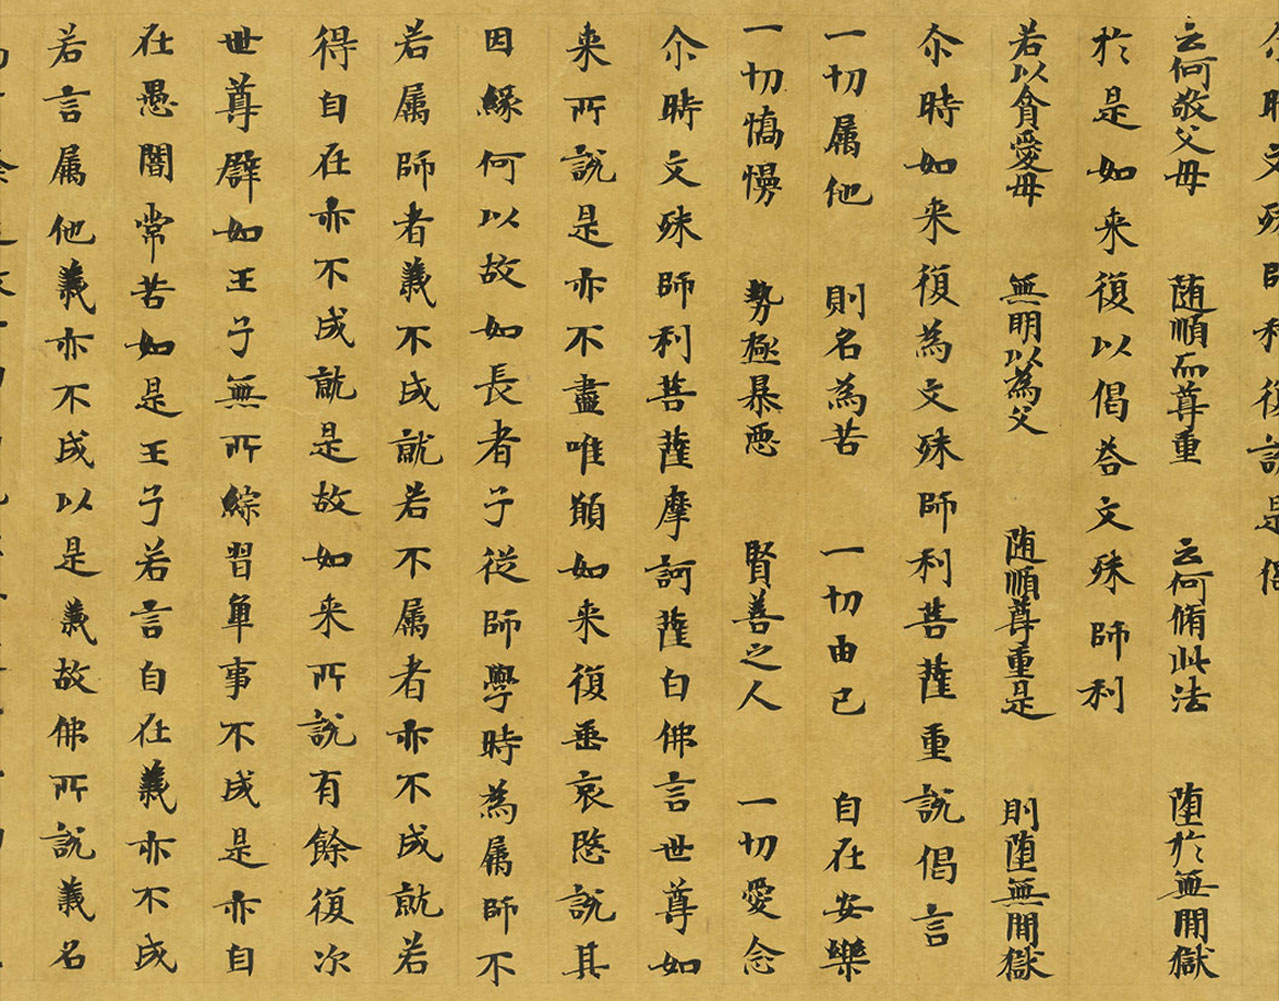 尒時文殊師利復說是偈
云何敬父母 随順而尊重 云何脩此法 堕於無間獄
於是如来復以偈荅文殊師利
若以貪愛母 無明以為父 随順尊重是 則堕無間獄
尒時如来復為文殊師利菩薩重說偈言
一切属他 則名為苦 一切由己 自在安樂
一切憍慢 勢極暴惡 賢善之人 一切愛念
尒時文殊師利菩薩摩訶薩白佛言世尊如
来所說是亦不盡唯願如来復垂哀愍說其
因緣何以故如長者子從師學時為属師不
若属師者義不成就若不属者亦不成就若
得自在亦不成就是故如来所說有餘復次
世尊譬如王子無所綜習觸事不成是亦自
在愚闇常苦如是王子若言自在義亦不成
若言属他義亦不成以是義故佛所說義名